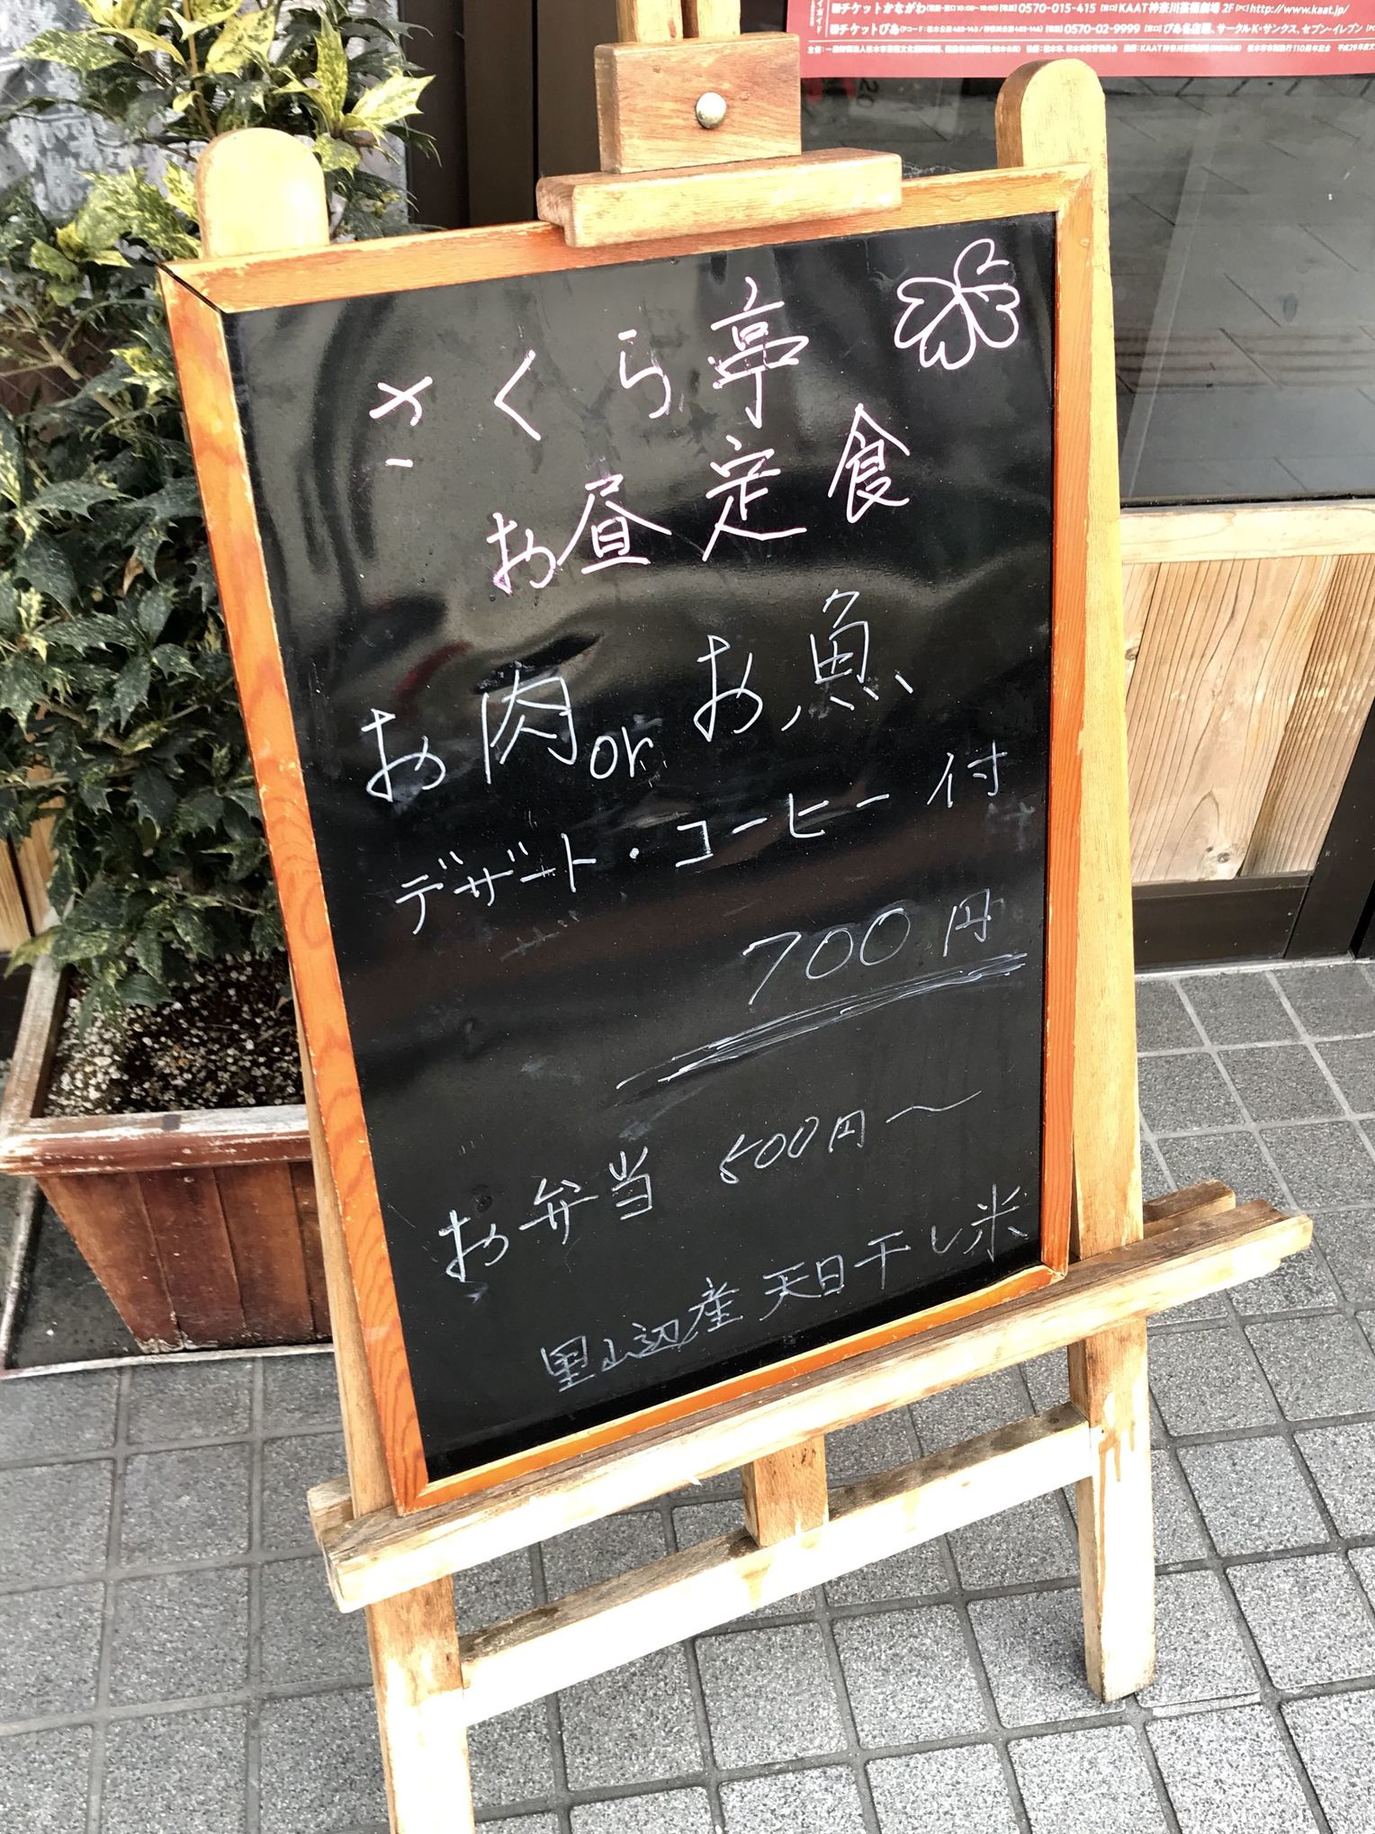 チケットかながわ 0570-015-415 KAAT神奈川芸術劇場 2F http://www.kaat.jp/
チケットぴあ 0570-02-9999 ぴあ各店舗、サークルK・サンクス、セブン-イレブン
さくら亭
お昼定食
お肉 or お魚
デザート・コーヒー付
700円
お弁当 500円〜
里山辺産 天日干し米